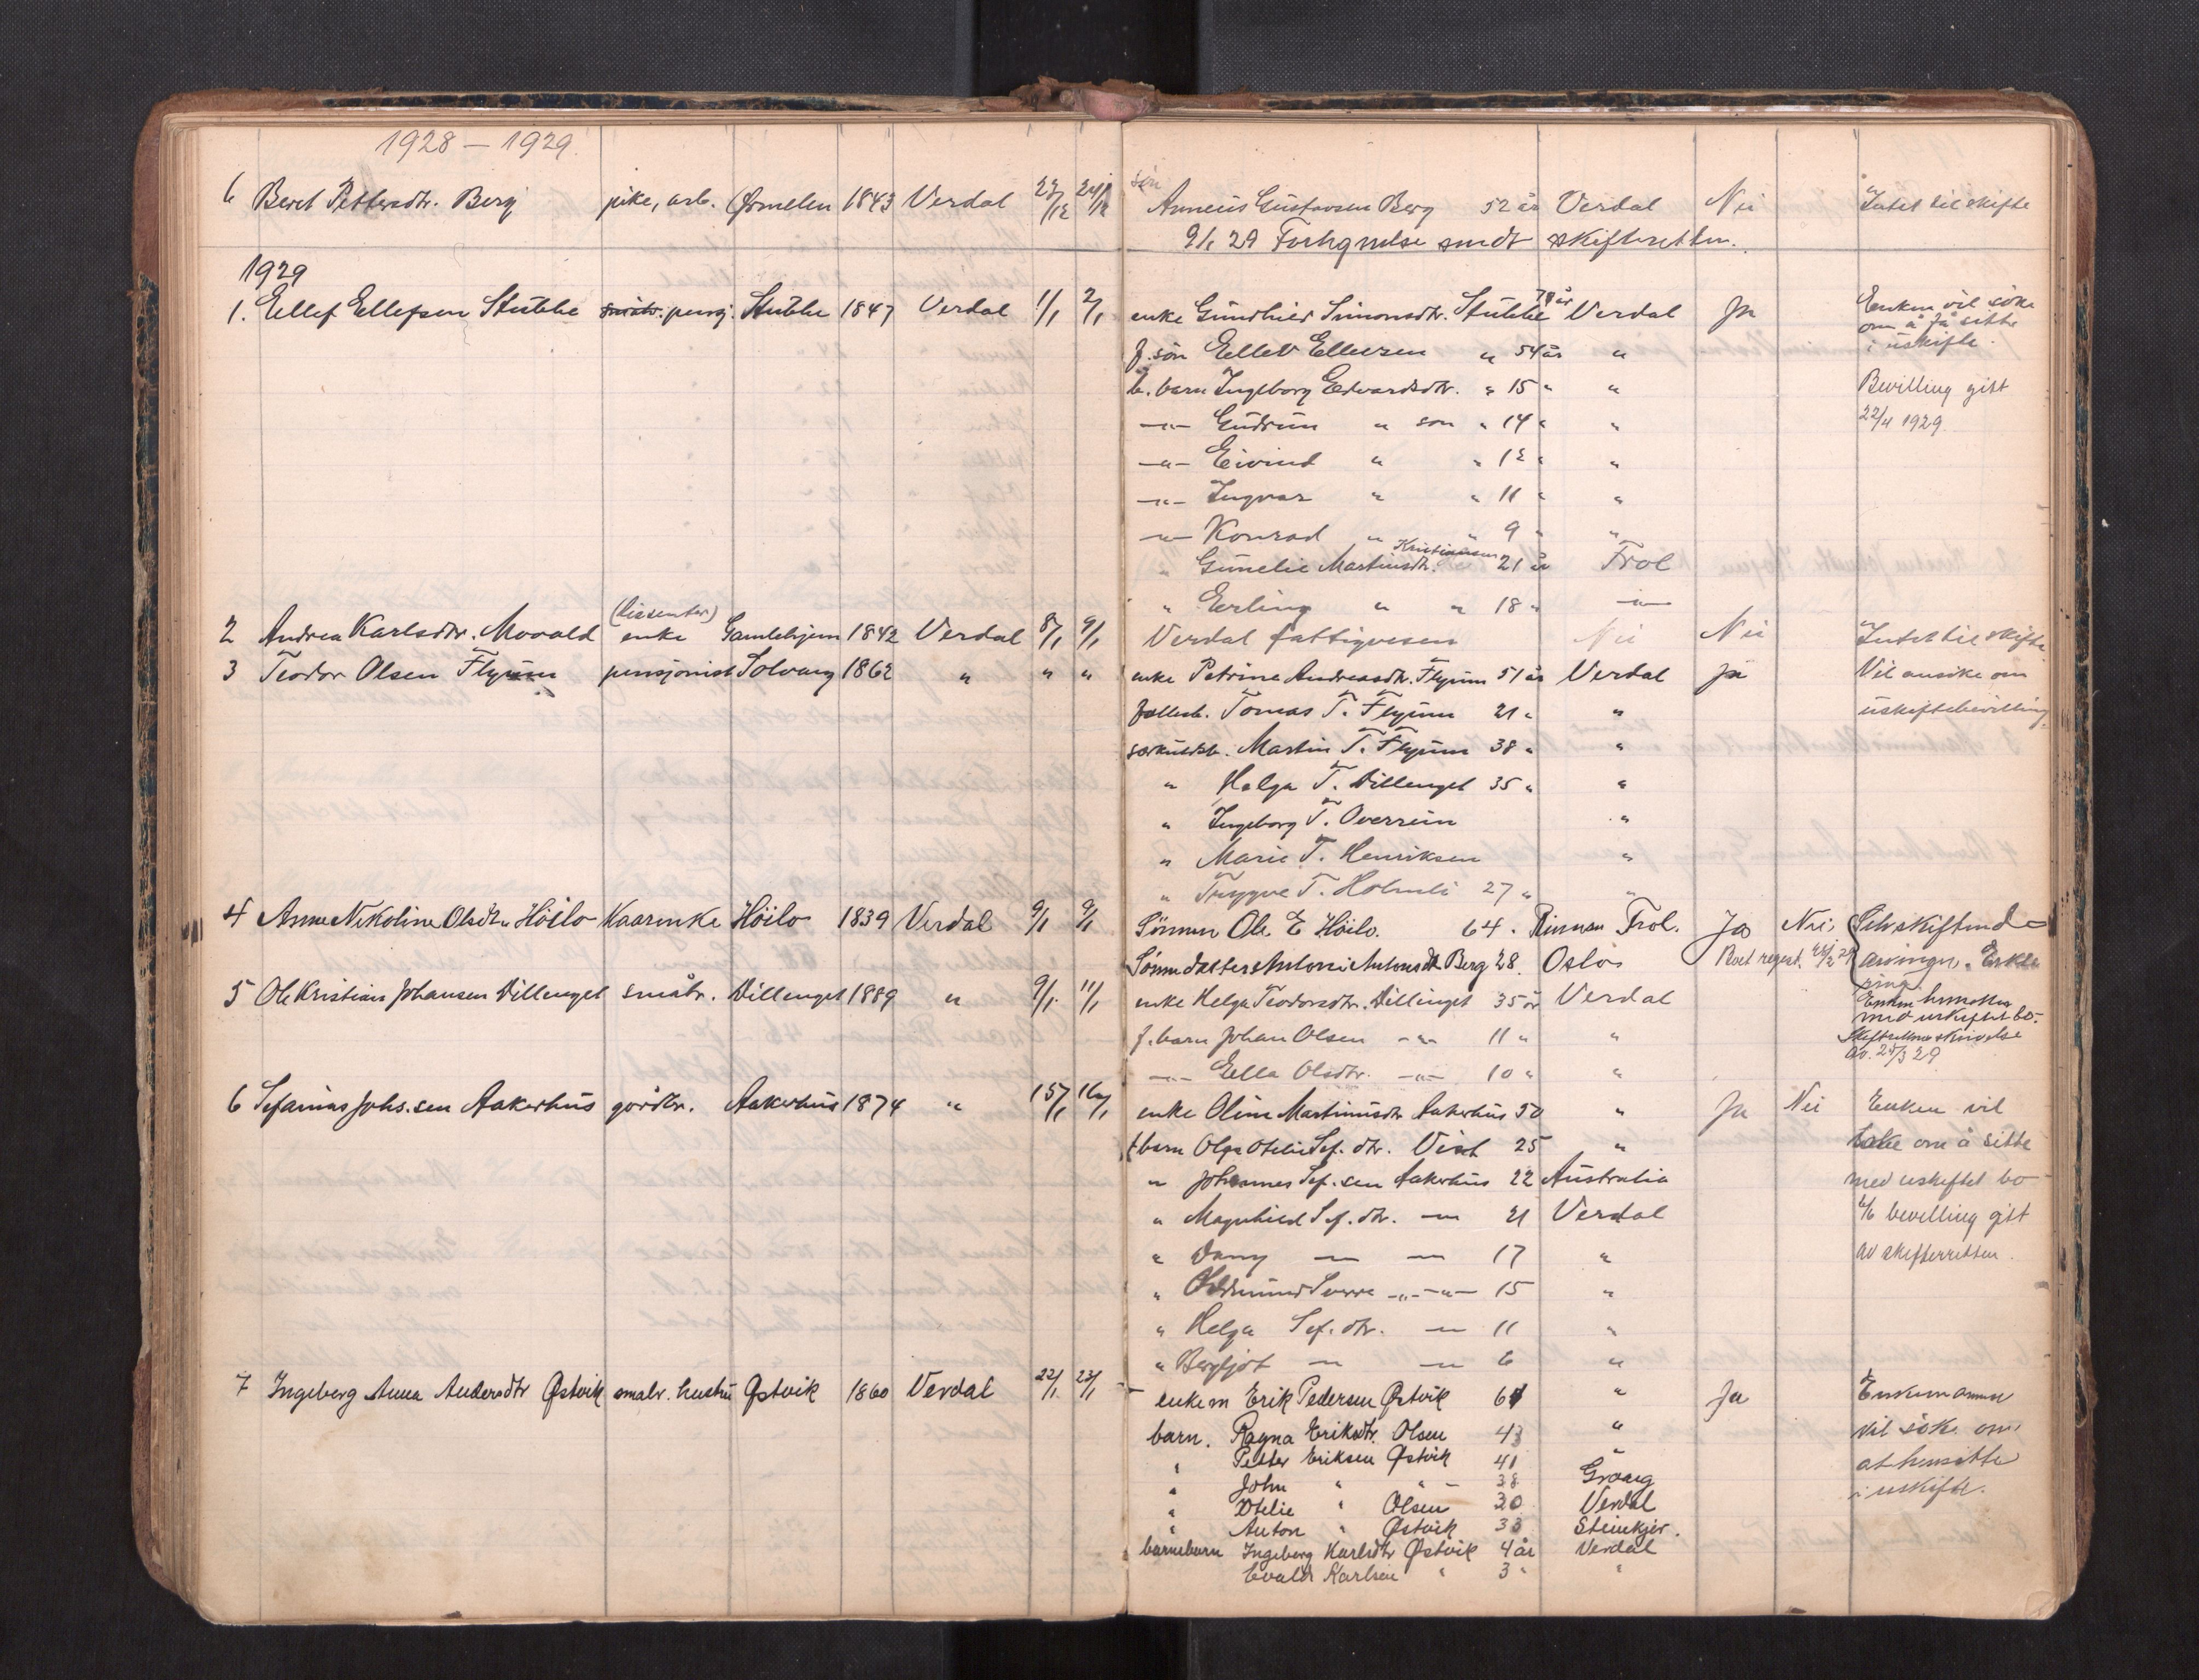 1928 – 1929.
6 Beret Pettersdtr. Berg pike, arb. Ørmelen 1843 Verdal 23/12 24/12 sön Anneus Gustavsen Berg 52 år Verdal Nei Intet til skifte
9/1 29 sendt skifteretten.
1929
1. Ellef Ellefsen Stubbe småbr. pensj. Stubbe 1847 Verdal 1/1 2/1 enke Gunhild Simonsdtr. Stubbe 79 år Verdal Ja Enken vil söke
f. sön Ellev Ellevsen „ 54 år „ om å få sitte
i uskifte.
b. barn Ingeborg Edvardsdtr. „ 15 „ „ Bevilling gitt
–„– Gudrun „ son „ 14 „ „ 22/4 1929.
–„– Eivind „ „ 12 „ „
–„– Ingvar „ „ 11 „ „
–„– Konrad „ „ 9 „ „
„ Gunelie Martinsdtr. Kristiansen 21 år Frol
„ Erling „ „ 18 „ –„–
2 Andrea Karlsdtr. Movald (dissenter) enke Gamlehjem 1842 Verdal 8/1 9/1 Verdal fattigvesen Nei Nei Intet til skifte
3 Teodor Olsen Flyum pensjonist Solvang 1862 „ „ „ enke Petrine Andreasdtr. Flyum 51 år Verdal Ja Vil ansöke om
fellesb. Tomas T. Flyum 21 „ „ uskiftebevilling.
særkuldsb. Martin T. Flyum 38 „ „
„ Helga T. Dillenget 35 „ „
„ Ingeborg T. Overrein „
„ Marie T. Henriksen „
„ Tryggve T. Holmli 27 „ „
4 Anne Nikoline Olsdtr Höilo Kaarenke Höilo 1839 Verdal 9/1 9/1 Sönnen Ole E Höilo. 64 . Rinnan Frol. Ja Nei. Selvskiftende
Sönnedatter Antoni Antonsdtr Berg 28. Oslo Boet regist. arvinger.
5 Ole Kristian Johansen Dillenget småbr. Dillenget 1889 „ 9/1. 11/1 enke Helga Teodorsdtr. Dillenget 35 år Verdal Enken hensitter
med uskiftet bo.
f. barn Johan Olsen –„– 11 „ „ Skifterettens skrivelse
av. 25/3 29
–„– Ella Olsdtr. –„– 10 „ „
6 Sefanias Johs.sen Aakerhus gårdbr. Aakerhus 1874 „ 15/1 16/1 enke Oline Martinusdtr Aakerhus 50 „ Ja Nei Enken vil
f barn Olga Otelie Sef. dtr. Vist 25 „ söke om å sitte
„ Johannes Sef.sen Aakerhus 22 Australia med uskiftet bo
„ Magnhild Sef. dtr. –„– 21 Verdal bevilling gitt
„ Dany –„– –„– 17 „ av skifteretten.
„ Oddmund Sverre –„– –„– 15 „
„ Helga Sef. dtr. –„– 11 „
„ Bergljot –„– –„– 6 „
7 Ingeberg Anna Andersdtr Østvik smabr. hustru Østvik 1860 Verdal 22/1. 23/1 enkem Erik Pedersen Østvik 61 „ Ja Enkemannen
barn. Ragna Eriksdtr. Olsen 43 „ vil söke om
„ Petter Eriksen Østvik 41 „ at hensitte
„ John „ „ 38 Grong i uskifte.
„ Otelie „ Olsen 30 Verdal
„ Anton „ Østvik 33 Steinkjer.
barnebarn Ingeberg Karlsdtr Østvik 4 år Verdal
Evald Karlsen „ 3 „ „